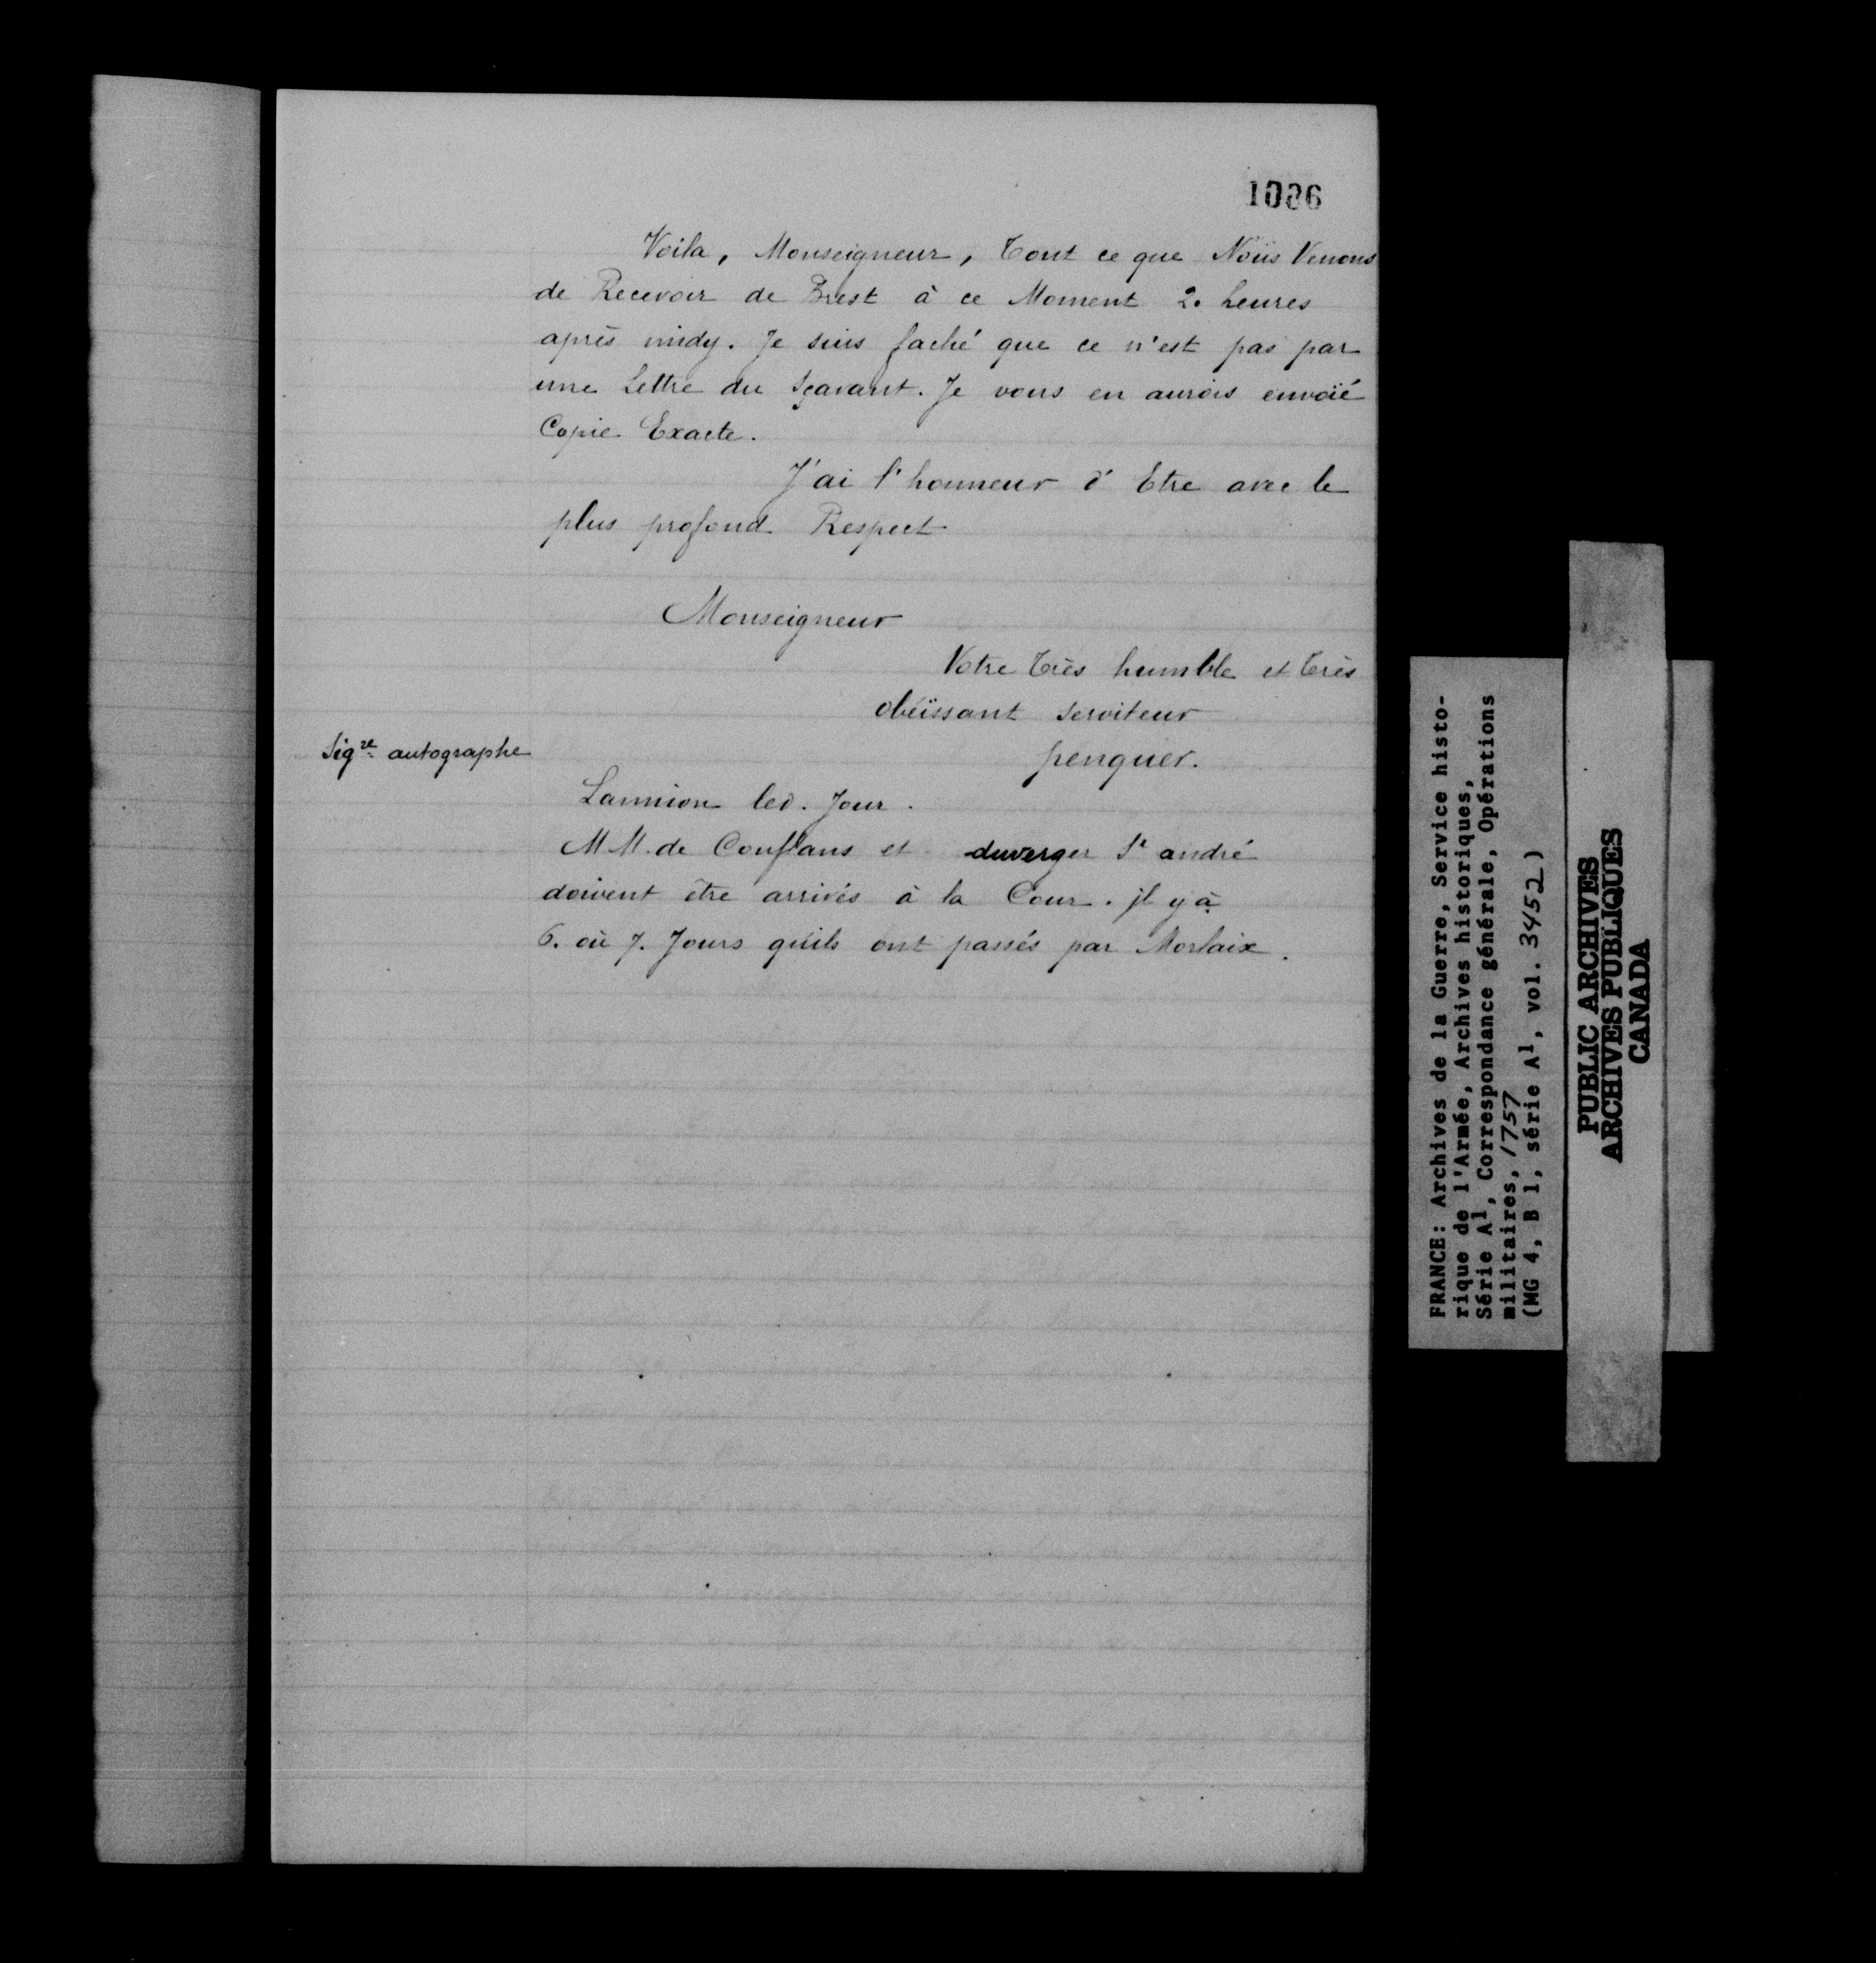 1086
Voila, Monseigneur, Tout ce que Noüs Venons
de Recevoir de Brest à ce Moment 2. heures
après midy. Je suis faché que ce n'est pas par
une Lettre du Sçavant. Je vous en aurois envoïé
Copie Exacte.
J'ai l'honneur d'Etre avec le
plus profond Respect
Monseigneur
Votre très humble et très
obéïssant serviteur
Sigre autographe
penquer.
Lannion led. Jour.
MM. de Conflans et duverger St andré
doivent être arrivés à la Cour. jl y à
6. où 7. Jours qu'ils ont passés par Morlaix.
FRANCE: Archives de la Guerre, Service histo-
rique de l'Armée, Archives historiques,
Série A1, Correspondance générale, Opérations
militaires, 1757
(MG 4, B 1, série A1, vol. 3452)
PUBLIC ARCHIVES
ARCHIVES PUBLIQUES
CANADA